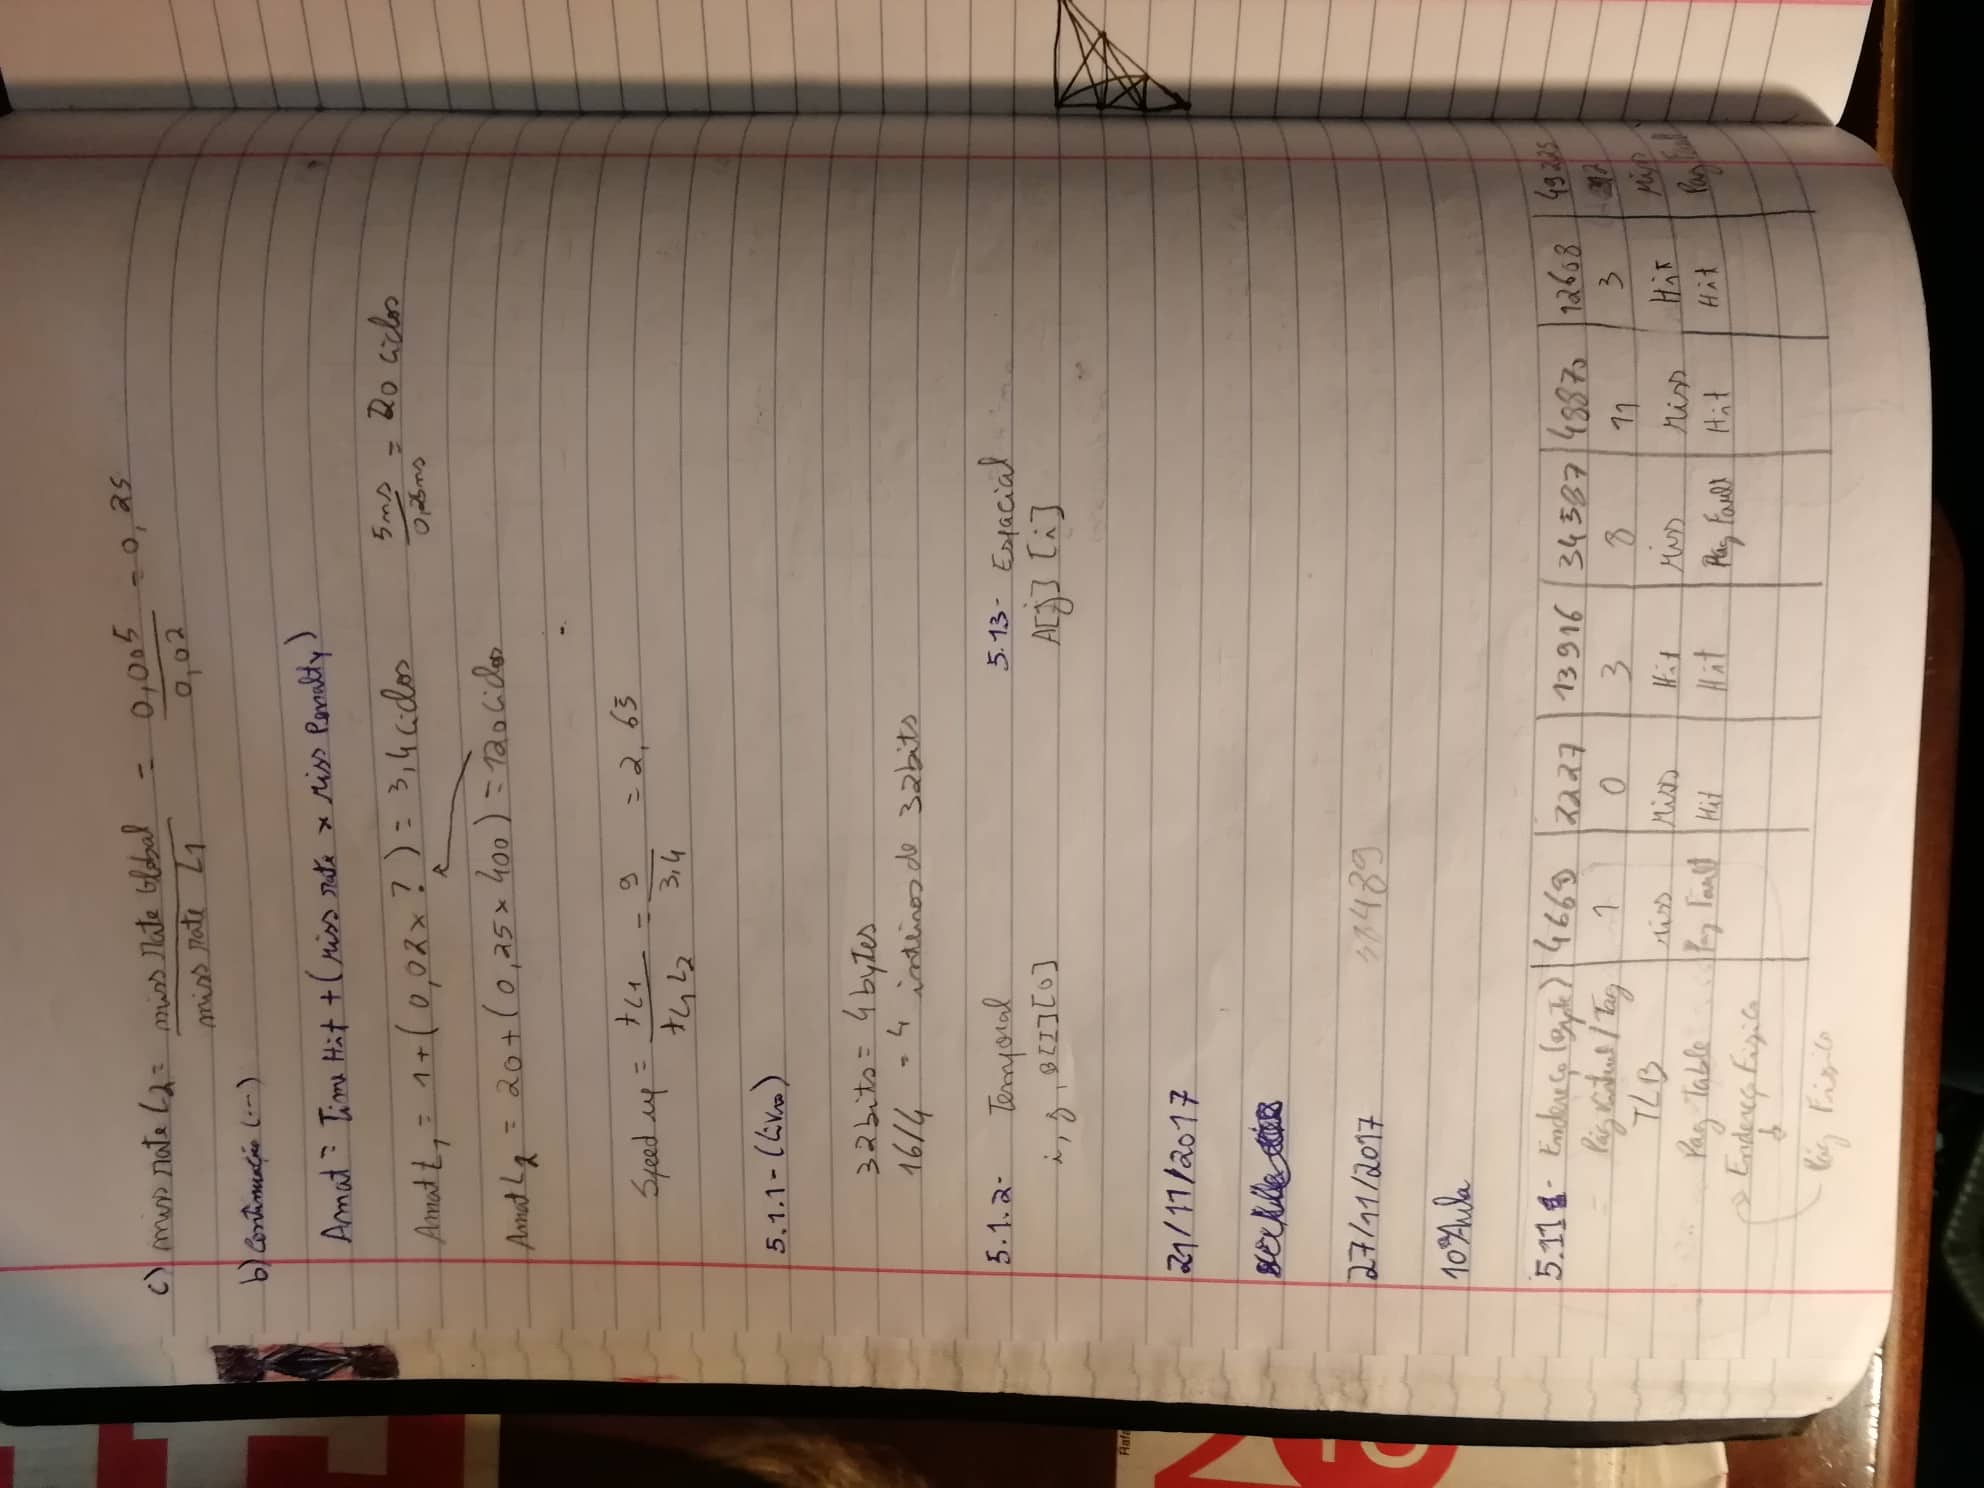 c) miss rate L2 = miss rate Global / miss rate L1 = 0,005 / 0,02 = 0,25
b) Continuação (...)
Amat = Time Hit + (Miss rate x Miss Penalty)
Amat L1 = 1 + (0,02 x ?) = 3,4 ciclos 5ns / 0,25ns = 20 ciclos
Amat L2 = 20 + (0,25 x 400) = 120 ciclos
Speed up = tL1 / tL1L2 = 9 / 3,4 = 2,65
5.1.1 - (Livro)
32 bits = 4 bytes
16/4 = 4 inteiros de 32 bits
5.1.2 - Temporal 5.13 - Espacial
i, j, B[I][0] A[j][i]
21/11/2017
27/11/2017
10ª Aula
5.11 - Endereço (byte) | 4669 | 2227 | 13916 | 34587 | 48870 | 12608 | 49225
Pág Virtual / Tag 1 0 3 8 11 3
TLB Miss Miss Hit Miss Miss Hit Miss
Pag Table Pag Fault Hit Hit Pág Fault Hit Hit Pag Fault
Endereço Físico
Pág Físico